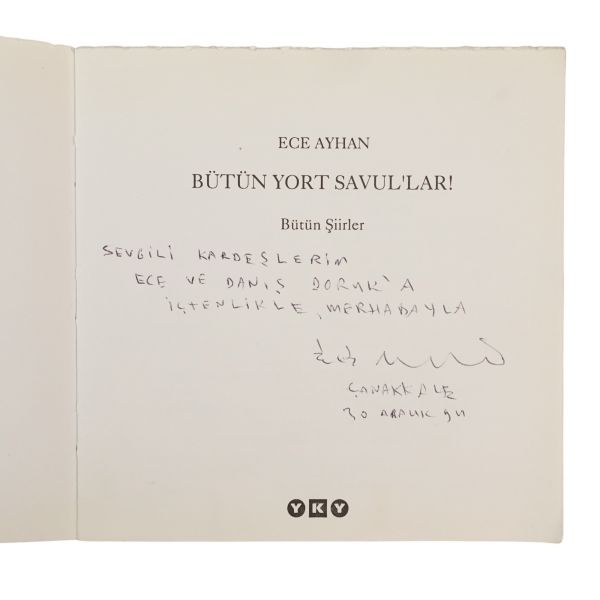 ECE AYHAN
BÜTÜN YORT SAVUL'LAR!
Bütün Şiirler
SEVGİLİ KARDEŞLERİM
ECE VE DANIŞ DORUK'A
İÇTENLİKLE, MERHABAYLA
ÇANAKKALE
30 ARALIK 94
YKY